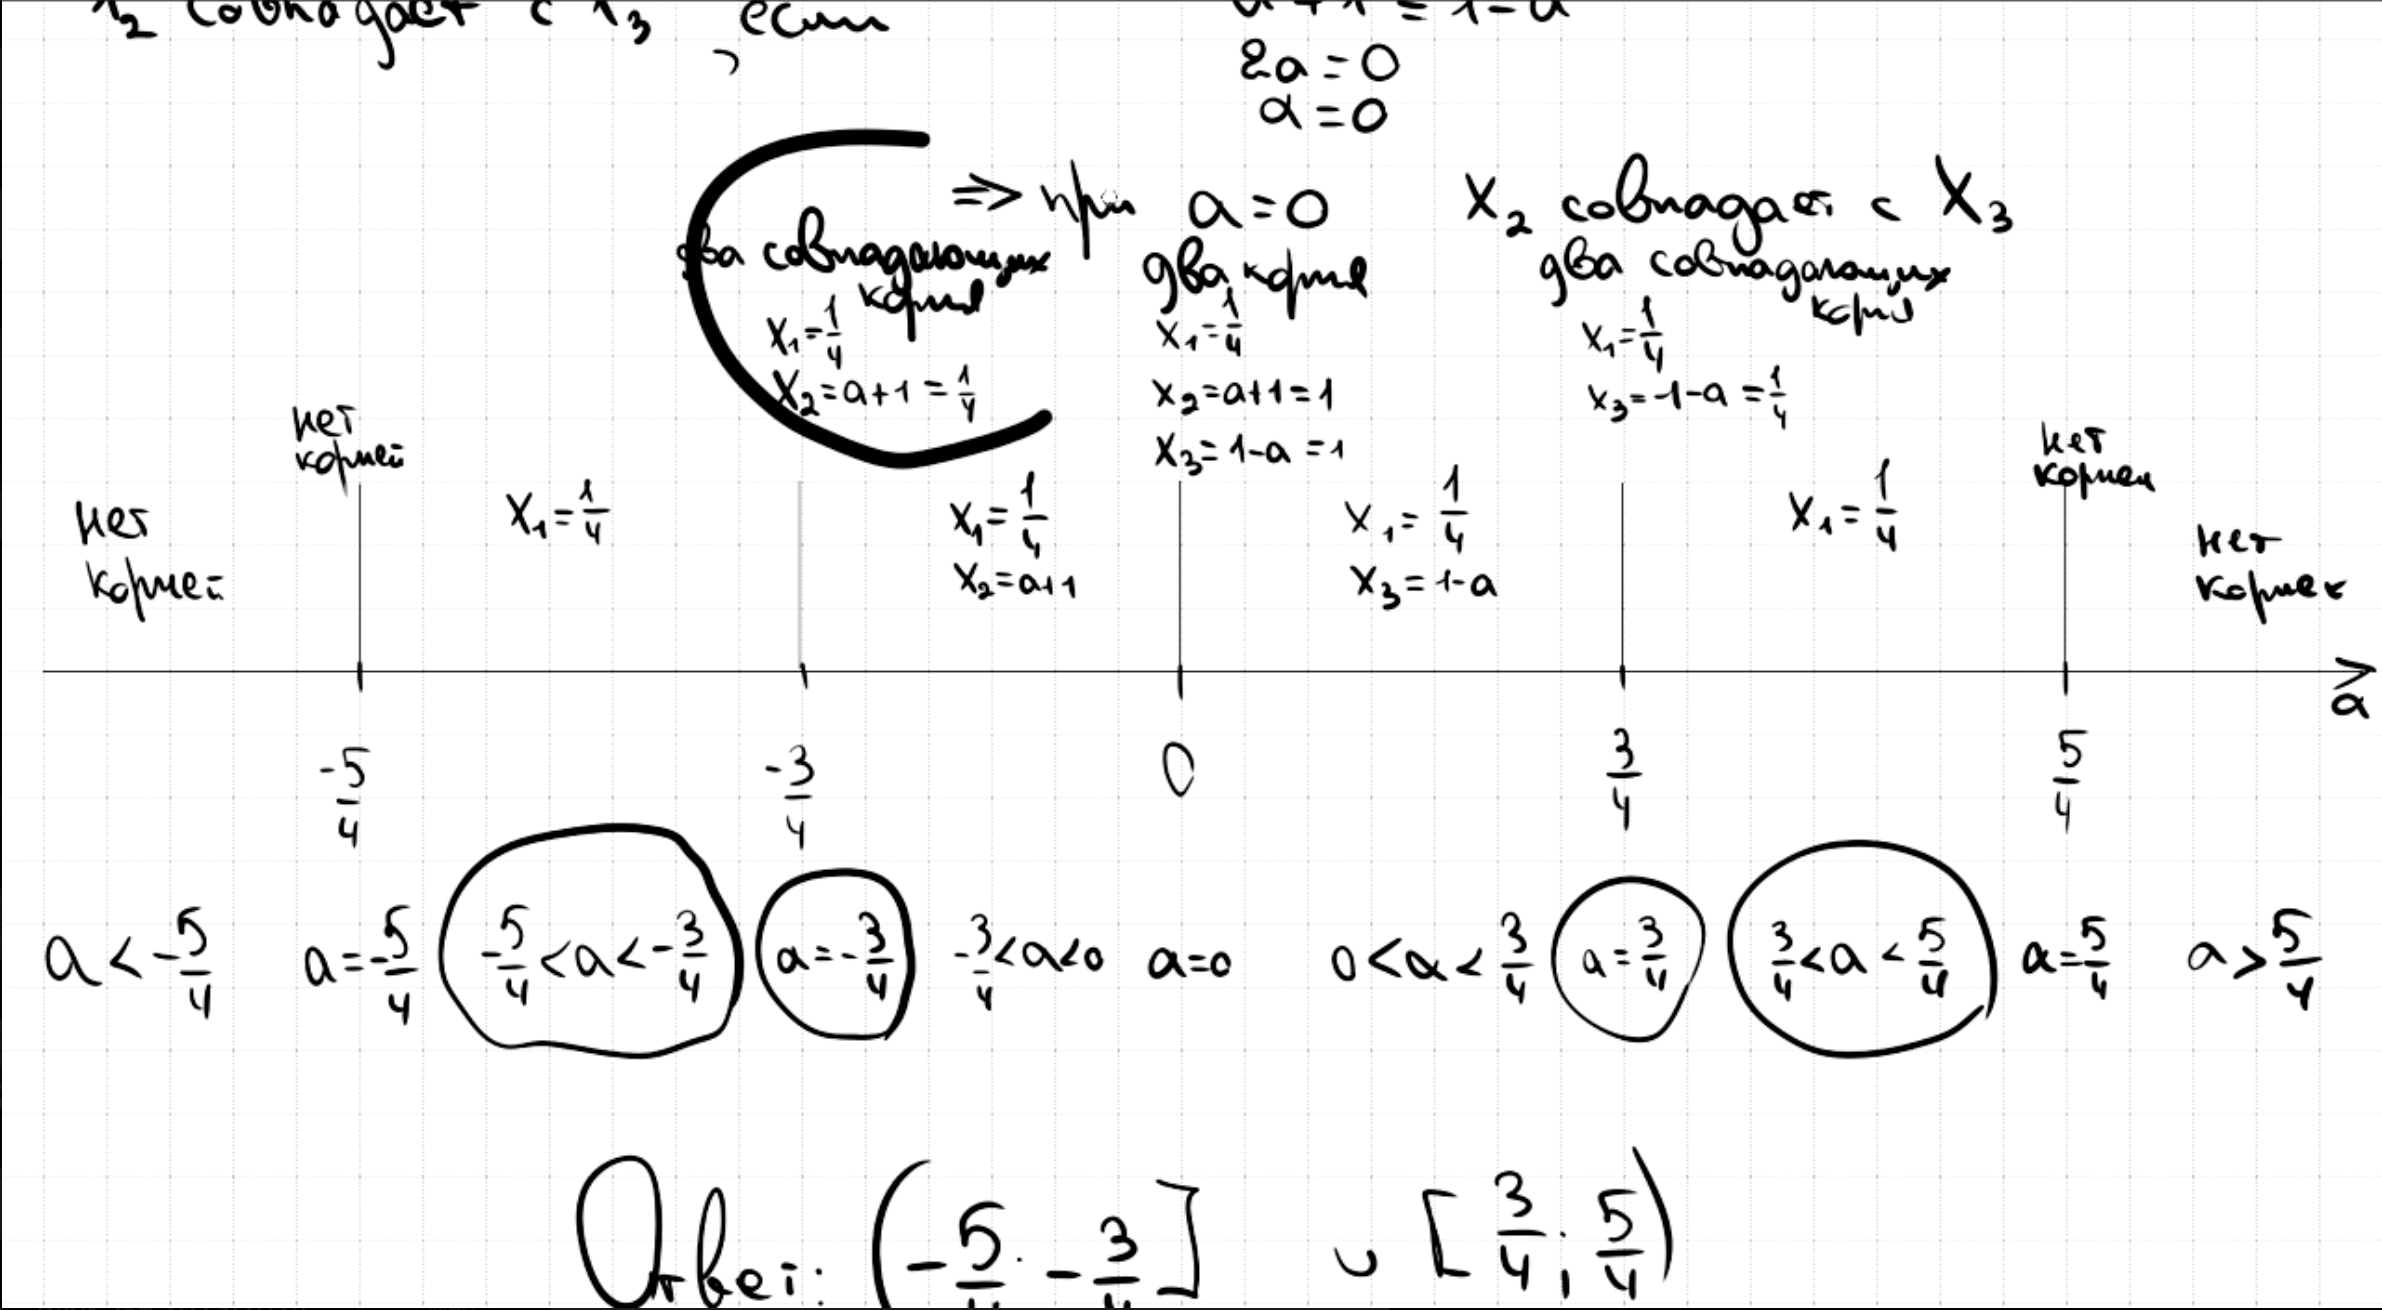 x₂ совпадает с x₃, если a+1 = 1-a
2a = 0
a = 0
=> при a = 0 x₂ совпадает с x₃
два совпадающих корня
x₁ = 1/4
x₂ = a+1 = 1/4
два корня
x₁ = 1/4
x₂ = a+1 = 1
x₃ = 1-a = 1
два совпадающих корня
x₁ = 1/4
x₃ = 1-a = 1/4
нет корней
нет корней
x₁ = 1/4
x₁ = 1/4
x₂ = a+1
x₁ = 1/4
x₃ = 1-a
x₁ = 1/4
нет корней
нет корней
a
-5/4 -3/4 0 3/4 5/4
a < -5/4 a = -5/4 -5/4 < a < -3/4 a = -3/4 -3/4 < a < 0 a = 0 0 < a < 3/4 a = 3/4 3/4 < a < 5/4 a = 5/4 a > 5/4
Ответ: (-5/4; -3/4] ∪ [3/4; 5/4)